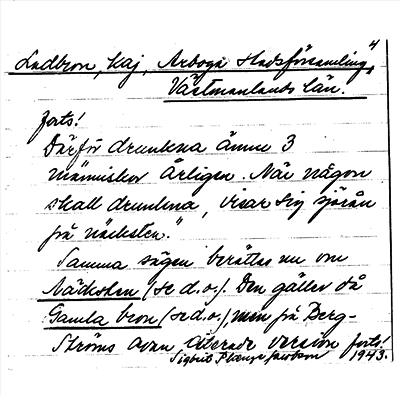 4
Ladbron, kaj, Arboga Stadsförsamling,
Västmanlands län.
forts!
Därför drunkna ännu 3
människor årligen. När någon
skall drunkna, visar sig sjörån
på Näcksten."
Samma sägen berättas nu om
Näcksten (se d.o.). Den gäller då
Gamla bron (se d.o.), men på Berg-
ströms ovan citerade version forts!
Sigbrit Plænge Jacobson 1943.